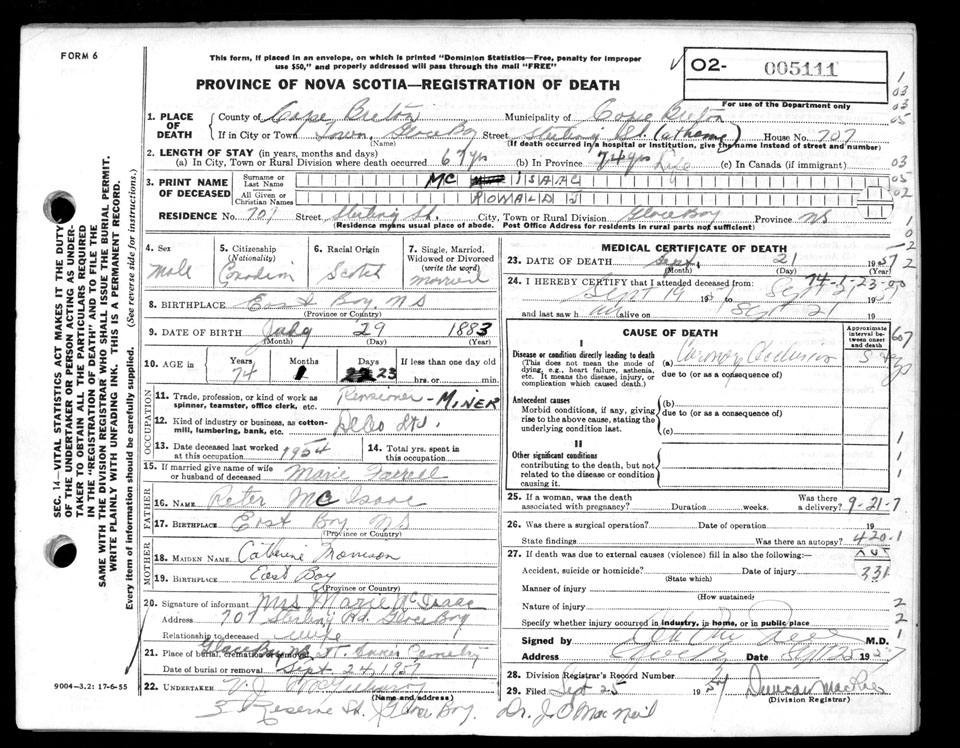 FORM 6
This form, if placed in an envelope, on which is printed "Dominion Statistics—Free, penalty for improper
use $50," and properly addressed will pass through the mail "FREE"
PROVINCE OF NOVA SCOTIA—REGISTRATION OF DEATH
O2- 005111
For use of the Department only
1. PLACE OF DEATH
County of Cape Breton Municipality of Cape Breton
If in City or Town Town, Glace Bay Street Sterling St. (at home) House No. 707
(Name) (If death occurred in a hospital or institution, give the name instead of street and number)
2. LENGTH OF STAY (in years, months and days)
(a) In City, Town or Rural Division where death occurred 67 yrs (b) In Province 74 yrs Life (c) In Canada (if immigrant)
3. PRINT NAME OF DECEASED
Surname or Last Name MC ISAAC
All Given or Christian Names RONALD J
RESIDENCE No. 707 Street Sterling St. City, Town or Rural Division Glace Bay Province NS
(Residence means usual place of abode. Post Office Address for residents in rural parts not sufficient)
4. Sex Male
5. Citizenship (Nationality) Canadian
6. Racial Origin Scotch
7. Single, Married, Widowed or Divorced (write the word) married
8. BIRTHPLACE East Bay, NS
(Province or Country)
9. DATE OF BIRTH July 29 1883
(Month) (Day) (Year)
10. AGE in Years 74 Months 1 Days 23 If less than one day old
hrs. or min.
OCCUPATION
11. Trade, profession, or kind of work as spinner, teamster, office clerk, etc. Pensioner - MINER
12. Kind of industry or business, as cotton-mill, lumbering, bank, etc.
13. Date deceased last worked at this occupation 1954
14. Total yrs. spent in this occupation
15. If married give name of wife or husband of deceased Marie
FATHER
16. NAME Peter McIsaac
17. BIRTHPLACE East Bay NS
(Province or Country)
MOTHER
18. MAIDEN NAME Catherine Morrison
19. BIRTHPLACE East Bay
(Province or Country)
20. Signature of informant Mrs Marie McIsaac
Address 707 Sterling Rd. Glace Bay
Relationship to deceased wife
21. Place of burial, cremation or removal Glace Bay NS St. Annes Cemetery
Date of burial or removal Sept. 24 1957
22. UNDERTAKER V.J.
(Name and address)
Reserve St. Glace Bay.
9004-3.2: 17-6-55
SEC. 14—VITAL STATISTICS ACT MAKES IT THE DUTY
OF THE UNDERTAKER OR PERSON ACTING AS UNDER-
TAKER TO OBTAIN ALL THE PARTICULARS REQUIRED
IN THE "REGISTRATION OF DEATH" AND TO FILE THE
SAME WITH THE DIVISION REGISTRAR WHO SHALL ISSUE THE BURIAL PERMIT.
WRITE PLAINLY WITH UNFADING INK. THIS IS A PERMANENT RECORD.
Every item of information should be carefully supplied. (See reverse side for instructions.)
MEDICAL CERTIFICATE OF DEATH
23. DATE OF DEATH Sept. 21 1957
(Month) (Day) (Year)
24. I HEREBY CERTIFY that I attended deceased from:
74-1-23-00
Sept 19 to Sept 21
and last saw h alive on Sept 21
CAUSE OF DEATH
Approximate interval between onset and death
I
Disease or condition directly leading to death
(This does not mean the mode of dying, e.g., heart failure, asthenia, etc. It means the disease, injury, or complication which caused death.)
(a) Coronary Occlusion
due to (or as a consequence of)
Antecedent causes
Morbid conditions, if any, giving rise to the above cause, stating the underlying condition last.
(b)
due to (or as a consequence of)
(c)
II
Other significant conditions
contributing to the death, but not related to the disease or condition causing it.
25. If a woman, was the death associated with pregnancy? Duration weeks. Was there a delivery? 9-21-7
26. Was there a surgical operation? Date of operation 19
State findings Was there an autopsy? 420.1
27. If death was due to external causes (violence) fill in also the following:—
Accident, suicide or homicide? Date of injury 331
(State which)
Manner of injury
(How sustained)
Nature of injury
Specify whether injury occurred in industry, in home, or in public place
Signed by M.D.
Address Date Sept 22 195
28. Division Registrar's Record Number
29. Filed Sept 25 19 Duncan MacRae
(Division Registrar)
Dr. J.C. MacNeil